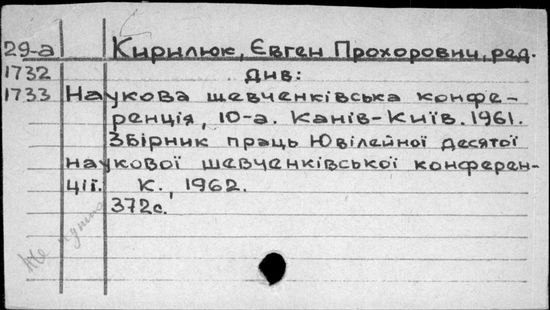 29-а Кирилюк, Євген Прохорович, ред.
1732 див:
1733 Наукова шевченківська конфе-
ренція, 10-а. Канів-Київ. 1961.
Збірник праць Ювілейної десятої
наукової шевченківської конферен-
ції. К., 1962.
372с.